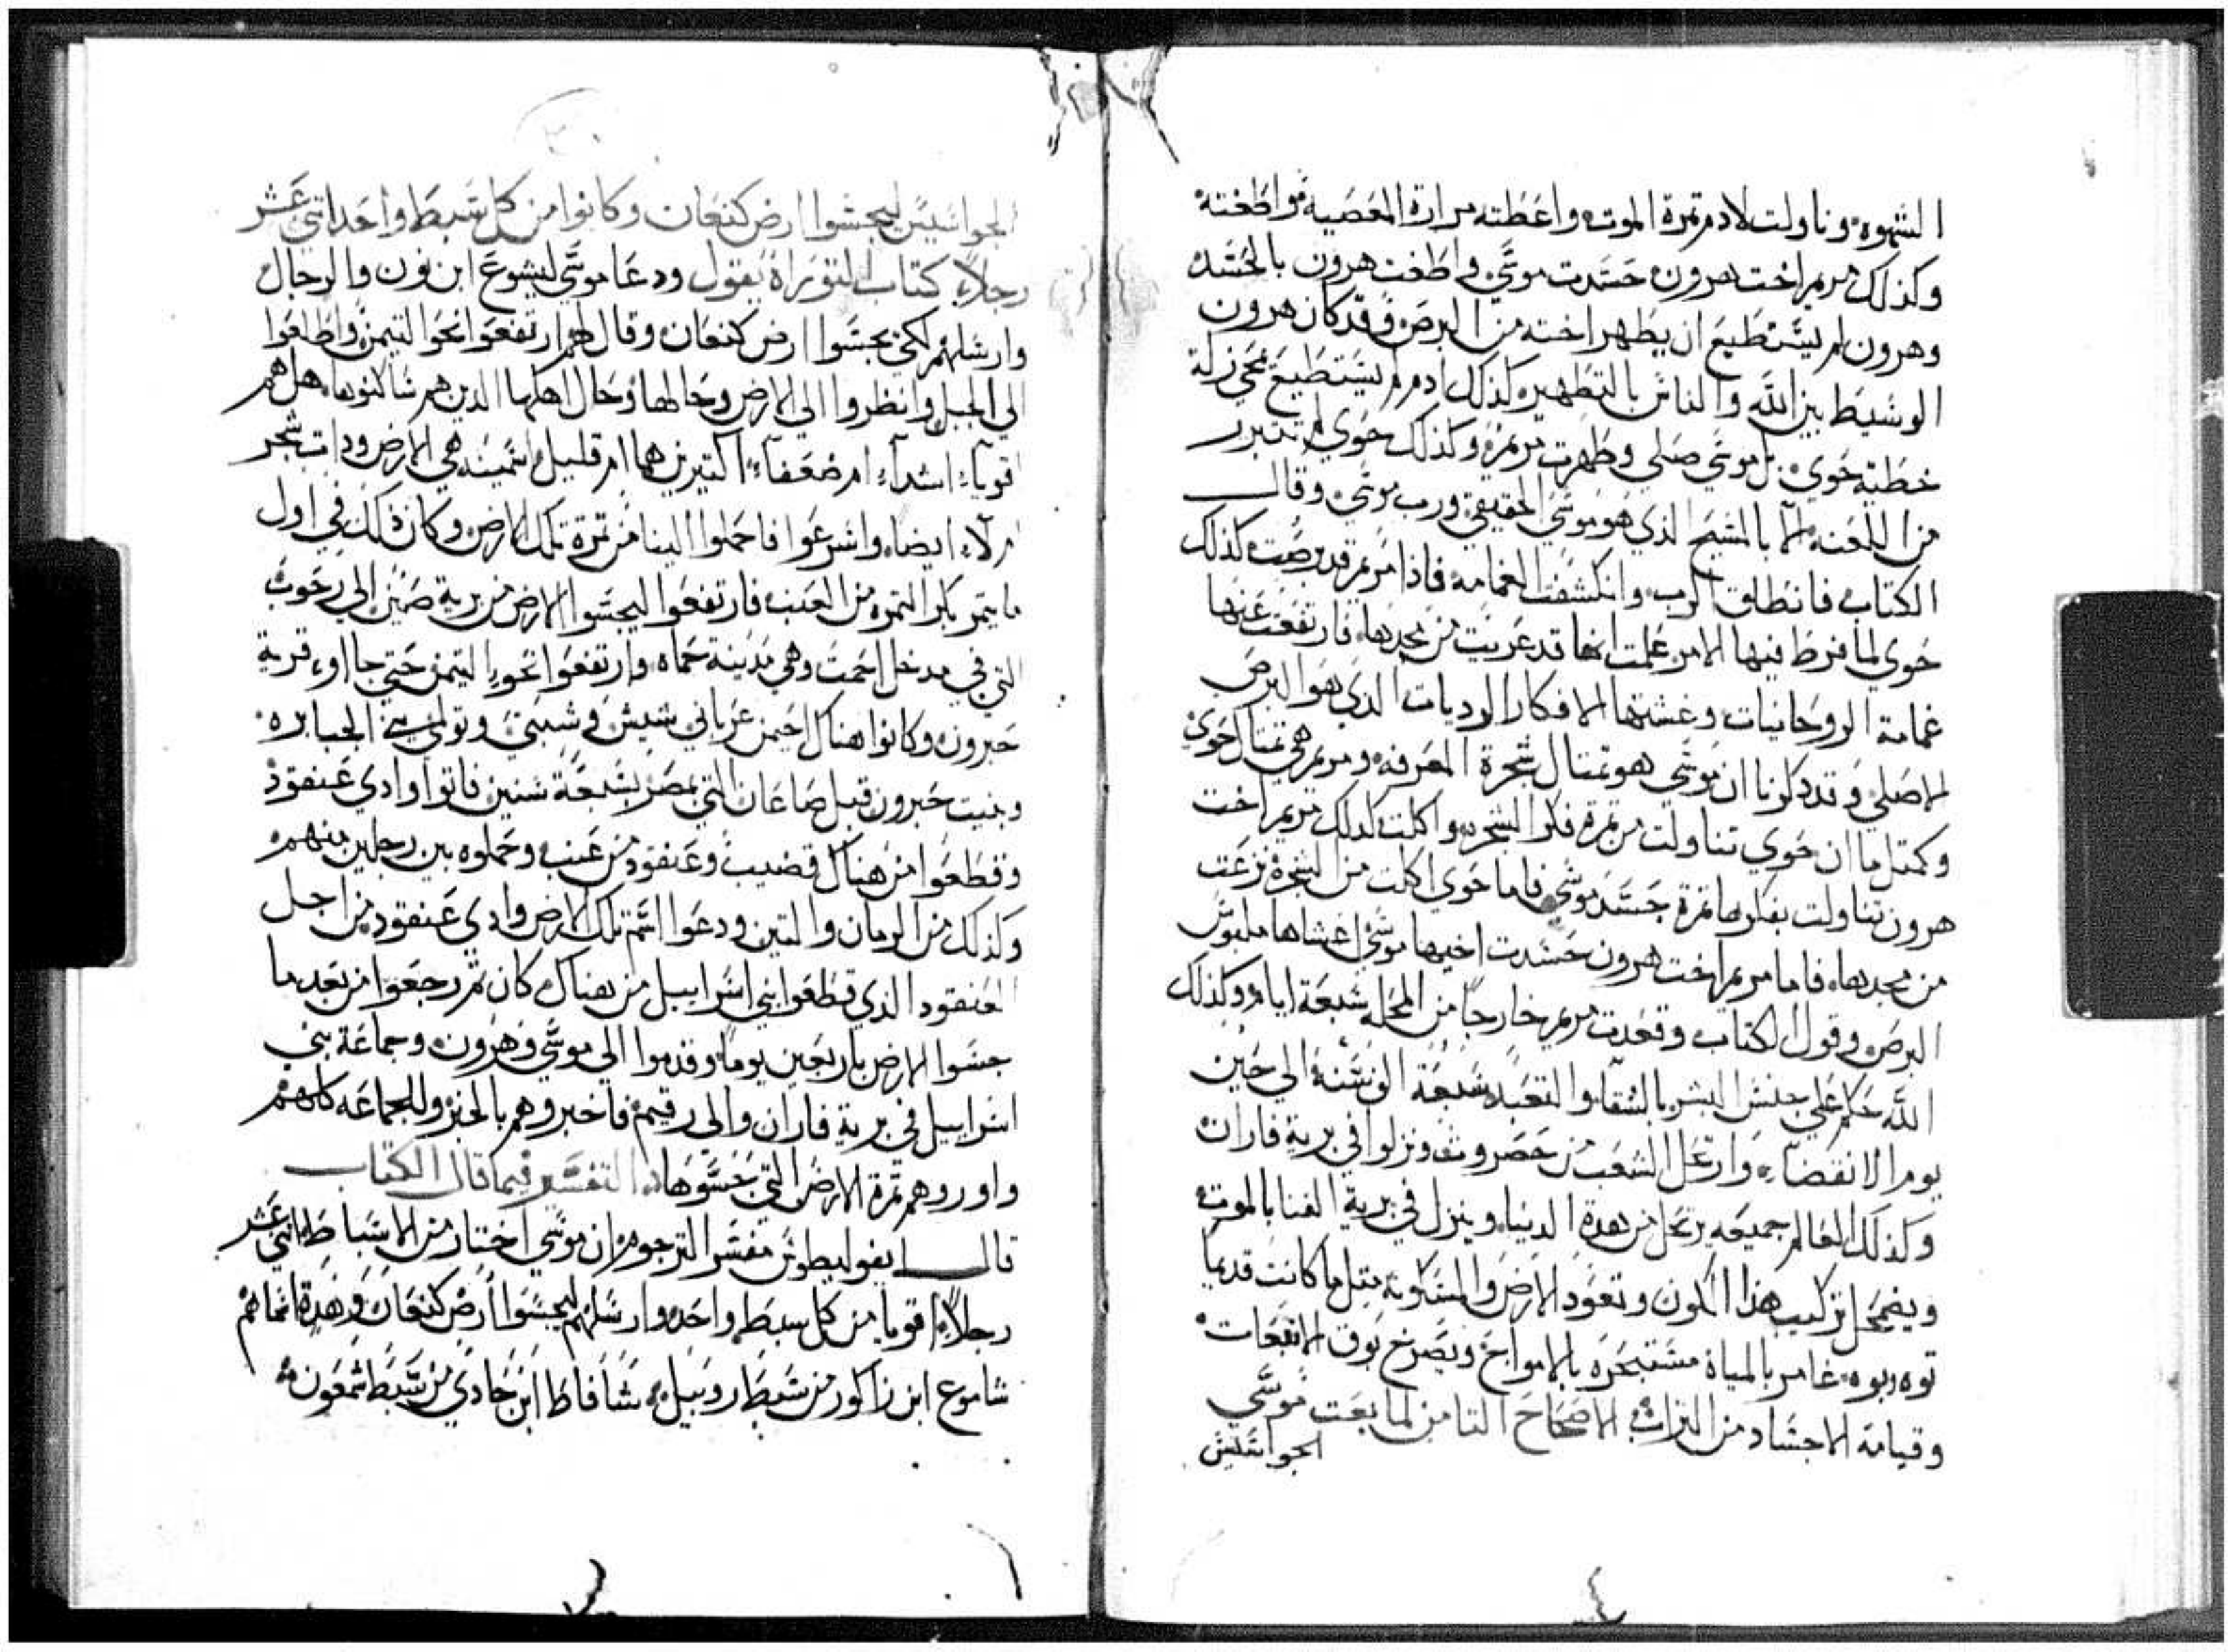 الشهوه وناولت لادم تمرة الموت واعطته مرارة المعصية واطغته
وكذلك مريم اخت هرون حسدت موسي واطغت هرون بالحسد
وهرون لم يستطيع ان يطهر اخته من البرص وقد كان هرون
الوسيط بين الله والناس بالتطهير كذلك ادم لم يستطيع محي زلة
خطية حوي بل موسي صلي وطهرت مريم وكذلك حوي لم تتبرر
من اللعنه الا بالمسيح الذي هو موسي الحقيقي ورب موسي وقال
الكتاب فانطلق الرب وانكشفت الغمامه فاذا مريم قد برصت كذلك
حوي لما فرط فيها الامر علمت انها قد عريت من مجدها فارتفعت عنها
غمامة الروحانيات وغشتها الافكار الرديات الدي هو البرص
الاصلي وقد دكرنا ان موسي هو تمتال شجرة المعرفه ومريم هي تمتال حوي
وكمتل ما ان حوي تناولت من تمرة فكر الشجره واكلت كدلك مريم اخت
هرون تناولت بفكرها تمرة حسد موسي فاما حوي اكلت من الشجرة نزعت
من مجدها فاما مريم اخت هرون حسدت اخيها موسي اغشاها ملبوس
البرص وقول الكتاب وقعدت مريم خارجا من المحله سبعة ايام وكذلك
الله حكم علي جنس البشر بالشقا والتعبد سبعة الف سنه الي حين
يوم الانقضاء وارتحل الشعب من حصروت ونزلوا في برية فاران
وكذلك العالم جميعه يرتحل من هدة الدنيا وينزل في برية الفنا بالموت
ويضمحل تركيب هذا الكون وتعود الارض والمسكونه متل ما كانت قديما
توه وبوه غامر بالمياه مستبحره بالامواج ويصرخ بوق الانبعات
وقيامة الاجساد من التراب الاصحاح التامن لما بعت موسي
الجواسيس
الجواسيس ليجسوا ارض كنعان وكانوا من كل سبط واحد اتني عشر
رجلا كتاب التوراة يقول ودعا موسي ليشوع ابن نون والرجال
وارسلهم لكي يجسوا ارض كنعان وقال لهم ارتفعوا نحو التيمن واطلعوا
الي الجبل وانظروا الي الارض وحالها وحال اهلها الدين هم ساكنوها هل هم
اقوياء اشداء ام ضعفاء اكتيرين هما ام قليل اسمينه هي الارض ودات شجر
ام لاء ايضا واسرعوا فاحملوا الينا من تمرة تلك الارض وكان ذلك في اول
ما يتمر باكر التمره من العنب فارتفعوا ليجسوا الارض من برية صين الي رحوب
التي في مدخل احمت وهي مدينة حماه وارتفعوا نحو التيمن حتي جااو قرية
حبرون وكانوا هناك احيمن عرباني شيش وشيبي وتولمي الجبابره
وبنيت حبرون قبل صاعان التي بمصر بسبعة سنين فاتوا وادي عنقود
وقطعوا من هناك قضيب وعنقود من عنب وحملوه بين رجلين منهم
وكذلك من الرمان والتين ودعوا اسم تلك الارض وادي عنقود من اجل
العنقود الذي قطعوا بني اسراييل من هناك كان تم رجعوا من بعد ما
جسوا الارض باربعين يوما وقدموا الي موسي وهرون وجماعة بني
اسراييل في برية فاران والي رقيم فاخبروهم بالخبر وللجماعه كلهم
واوروهم تمرة الارض التي جسوها التفسير فيما قال الكتاب
قال ايفوليطوس مفسر الترجوم ان موسي اختار من الاسباط اتني عشر
رجلا اقويا من كل سبط واحد وارسلهم ليجسوا ارض كنعان وهدة اسماهم
شاموع ابن زاكور من سبط روبيل شافاط ابن حادي من سبط شمعون